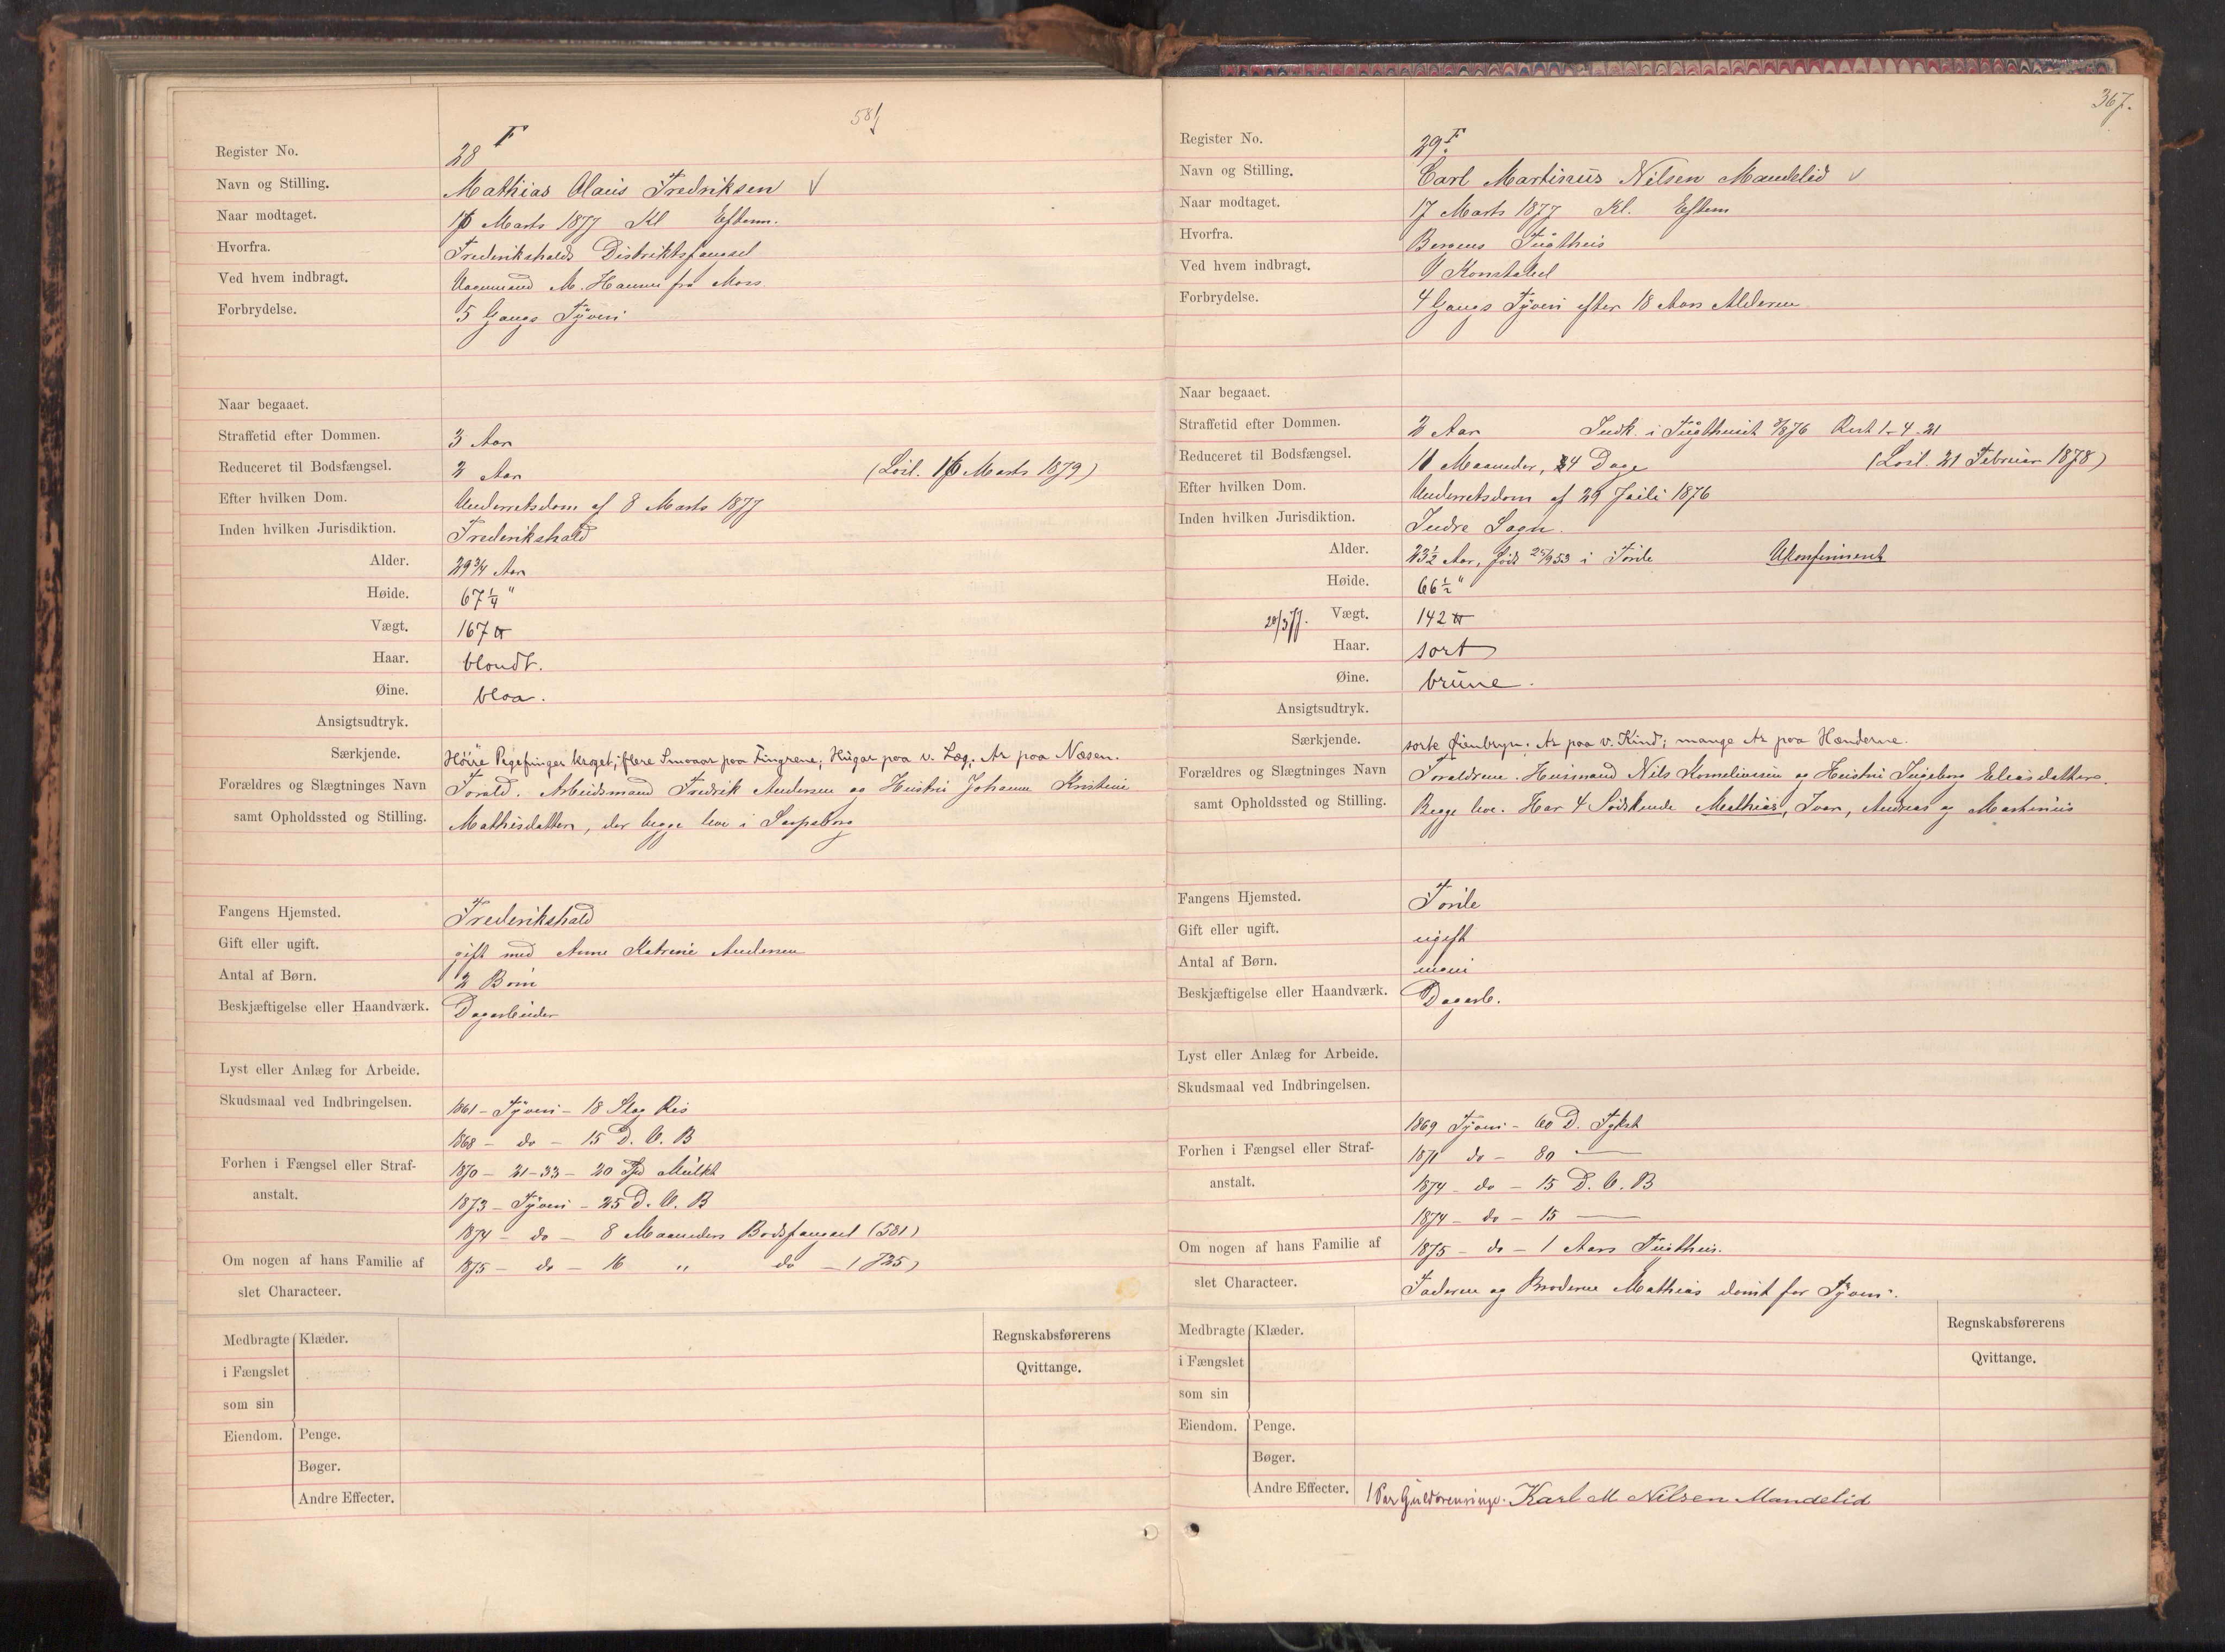 581
Register No. 28 F
Navn og Stilling. Mathias Olaus Fredriksen V
Naar modtaget. 16 Marts 1877 Kl Efterm.
Hvorfra. Frederikshalds Distriktsfængsel
Ved hvem indbragt. M. Hansen fra Moss
Forbrydelse. 5 Gangs Tÿveri
Naar begaaet.
Straffetid efter Dommen. 3 Aar
Reduceret til Bodsfængsel. 2 Aar (Løsl. 16 Marts 1879)
Efter hvilken Dom. Underretsdom af 8 Marts 1877
Inden hvilken Jurisdiktion. Frederikshald
Alder. 29 3/4 Aar
Høide. 67 1/4 "
Vægt. 167 ℔
Haar. blondt.
Øine. blaa.
Ansigtsudtryk.
Særkjende. Høire Pegefinger kroget; flere Smaaar paa Fingrene; Hugar paa v. Læg. Ar paa Næsen.
Forældres og Slægtninges Navn Foræld. Arbeidsmand Fredrik Andersen og Hustru Johanne Kristine
samt Opholdssted og Stilling. Mathisdatter, der begge leve i Sarpsborg
Fangens Hjemsted. Frederikshald
Gift eller ugift. gift med Anne Katrine Andersen
Antal af Børn. 2 Børn
Beskjæftigelse eller Haandværk. Dagarbeider
Lyst eller Anlæg for Arbeide.
Skudsmaal ved Indbringelsen. 1861 – Tÿveri – 18 Slag Ris
1868 – do – 15 D. V. B
Forhen i Fængsel eller Straf- 1870 – 21-33 – 20 Spd Mulkt
anstalt. 1873 – Tÿveri – 25 D. V. B
1874 – do – 8 Maaneders Bodsfængsel (581)
Om nogen af hans Familie af 1875 – do – 16 " do – (725)
slet Characteer.
Medbragte Klæder. Regnskabsførerens
i Fængslet Qvittange.
som sin
Eiendom. Penge.
Bøger.
Andre Effecter.
367.
Register No. 29 F.
Navn og Stilling. Carl Martinus Nilsen Mandelid V
Naar modtaget. 17 Marts 1877 Kl. Efterm
Hvorfra. Bergens Tugthus
Ved hvem indbragt. 1 Konstabel
Forbrydelse. 4 Gangs Tÿveri efter 18 Aars Alderen
Naar begaaet.
Straffetid efter Dommen. 2 Aar Indk. i Tugthuset 3/8 76 Rest 1-4-21
Reduceret til Bodsfængsel. 11 Maaneder, 4 Dage (Løsl. 21 Februar 1878)
Efter hvilken Dom. Underretsdom af 29 Juli 1876
Inden hvilken Jurisdiktion. Indre Sogn.
Alder. 23 1/2 Aar, født 25/9 53 i Førde Ukonfirmeret
Høide. 66 1/2 "
20/3 77. Vægt. 142 ℔
Haar. sort
Øine. brune.
Ansigtsudtryk.
Særkjende. sorte Øienbryn; Ar paa v. Kind; mange Ar paa Hænderne.
Forældres og Slægtninges Navn Forældrene. Husmand Nils Korneliussen og Hustru Ingeborg Eliasdatter.
samt Opholdssted og Stilling. Begge leve. Har 4 Sødskende Mathias, Ivar, Andreas og Martinus
Fangens Hjemsted. Førde
Gift eller ugift. ugift
Antal af Børn. ingen
Beskjæftigelse eller Haandværk. Dagarb.
Lyst eller Anlæg for Arbeide.
Skudsmaal ved Indbringelsen.
1869 Tÿveri – 60 D. Fgkst
Forhen i Fængsel eller Straf- 1871 do – 80 —
anstalt. 1874 – do – 15 D. V. B
1874 – do – 15 —
Om nogen af hans Familie af 1875 – do – 1 Aars Tugthus.
slet Characteer. Faderen og Broderen Mathias dømt for Tÿveri.
Medbragte Klæder. Regnskabsførerens
i Fængslet Qvittange.
som sin
Eiendom. Penge.
Bøger.
Andre Effecter. 1 Par Guldørenringe. Karl M Nilsen Mandelid